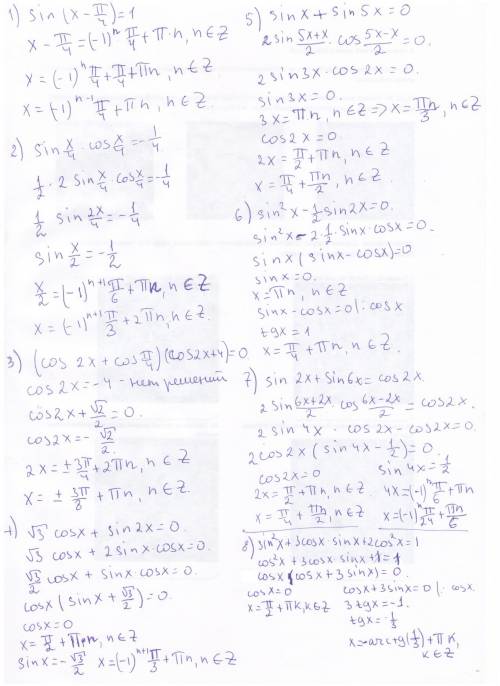 1) sin (x - π/4) = 1
x - π/4 = (-1)ⁿ π/4 + π·n, n∈Z
x = (-1)ⁿ π/4 + π/4 + πn, n∈Z
x = (-1)ⁿ⁻¹ π/4 + πn, n∈Z.
2) sin x/4 · cos x/4 = -1/4
1/2 · 2 sin x/4 · cos x/4 = -1/4
1/2 sin 2x/4 = -1/4
sin x/2 = -1/2
x/2 = (-1)ⁿ⁺¹ π/6 + πn, n∈Z
x = (-1)ⁿ⁺¹ π/3 + 2πn, n∈Z.
3) (cos 2x + cos π/4)(cos2x+4)=0
cos2x = -4 - нет решений
cos2x + √2/2 = 0.
cos2x = -√2/2.
2x = ± 3π/4 + 2πn, n∈Z
x = ± 3π/8 + πn, n∈Z.
4) √3 cosx + sin2x = 0.
√3 cosx + 2sinx·cosx = 0.
√3/2 cosx + sinx·cosx = 0.
cosx (sinx + √3/2) = 0.
cosx = 0
x = π/2 + πn, n∈Z
sinx = -√3/2 x = (-1)ⁿ⁺¹ π/3 + πn, n∈Z
5) sinx + sin5x = 0
2sin (5x+x)/2 · cos (5x-x)/2 = 0.
2 sin3x · cos2x = 0.
sin3x = 0.
3x = πn, n∈Z => x = πn/3, n∈Z
cos2x = 0.
2x = π/2 + πn, n∈Z
x = π/4 + πn/2, n∈Z.
6) sin²x - 1/2 sin2x = 0.
sin²x - 2·1/2 · sinx·cosx = 0.
sinx (sinx - cosx) = 0
sinx = 0.
x = πn, n∈Z
sinx - cosx = 0 |: cosx
tgx = 1
x = π/4 + πn, n∈Z.
7) sin 2x + sin6x = cos2x.
2sin (6x+2x)/2 · cos (6x-2x)/2 = cos2x.
2 sin 4x · cos2x - cos2x = 0.
2cos2x (sin4x - 1/2) = 0.
cos2x = 0 sin4x = 1/2
2x = π/2 + πn, n∈Z. 4x = (-1)ⁿ π/6 + πn
x = π/4 + πn/2, n∈Z. x = (-1)ⁿ π/24 + πn/6
8) sin²x + 3cosx·sinx + 2cos²x = 1
cos²x + 3cosx·sinx + 1 = 1
cosx (cosx + 3sinx) = 0.
cosx = 0 cosx + 3sinx = 0 |: cosx.
x = π/2 + πk, k∈Z 3tgx = -1.
tgx = -1/3
x = -arctg(1/3) + πk,
k∈Z